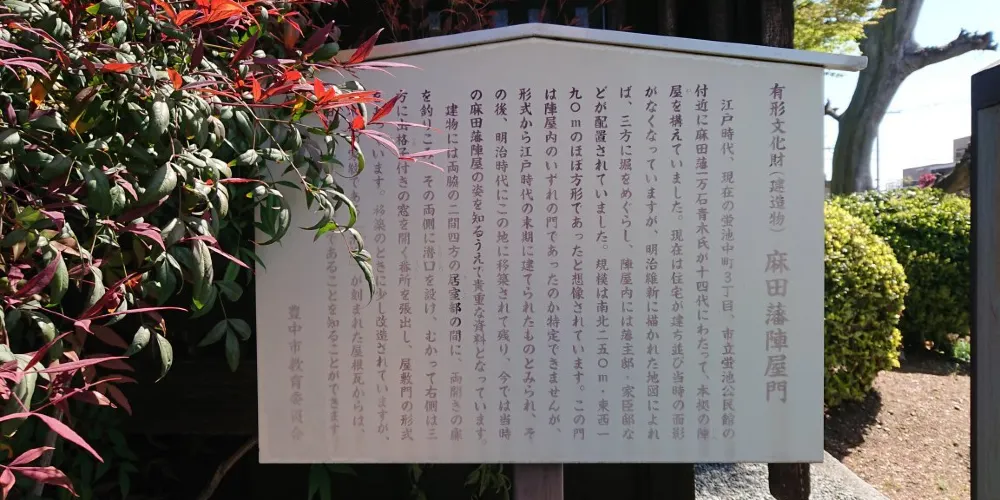 有形文化財(建造物) 麻田藩陣屋門
江戸時代、現在の蛍池中町3丁目、市立蛍池公民館の
付近に麻田藩一万石青木氏が十四代にわたって、本拠の陣
屋を構えていました。現在は住宅が建ち並び当時の面影
がなくなっていますが、明治維新に描かれた地図によれ
ば、三方に堀をめぐらし、陣屋内には藩主邸・家臣邸な
どが配置されていました。規模は南北二五〇m・東西一
九〇mのほぼ方形であったと想像されています。この門
は陣屋内のいずれの門であったのか特定できませんが、
形式から江戸時代の末期に建てられたものとみられ、そ
の後、明治時代にこの地に移築されて残り、今では当時
の麻田藩陣屋の姿を知るうえで貴重な資料となっています。
建物には両脇の二間四方の居室部の間に、両開きの扉
を釣りこ その両側に潜口を設け、むかって右側は三
方に出格子付きの窓を開く番所を張出し、屋敷門の形式
っています。移築のときに少し改造されていますが、
が刻まれた屋根瓦からは、
であることを知ることができます
豊中市教育委員会